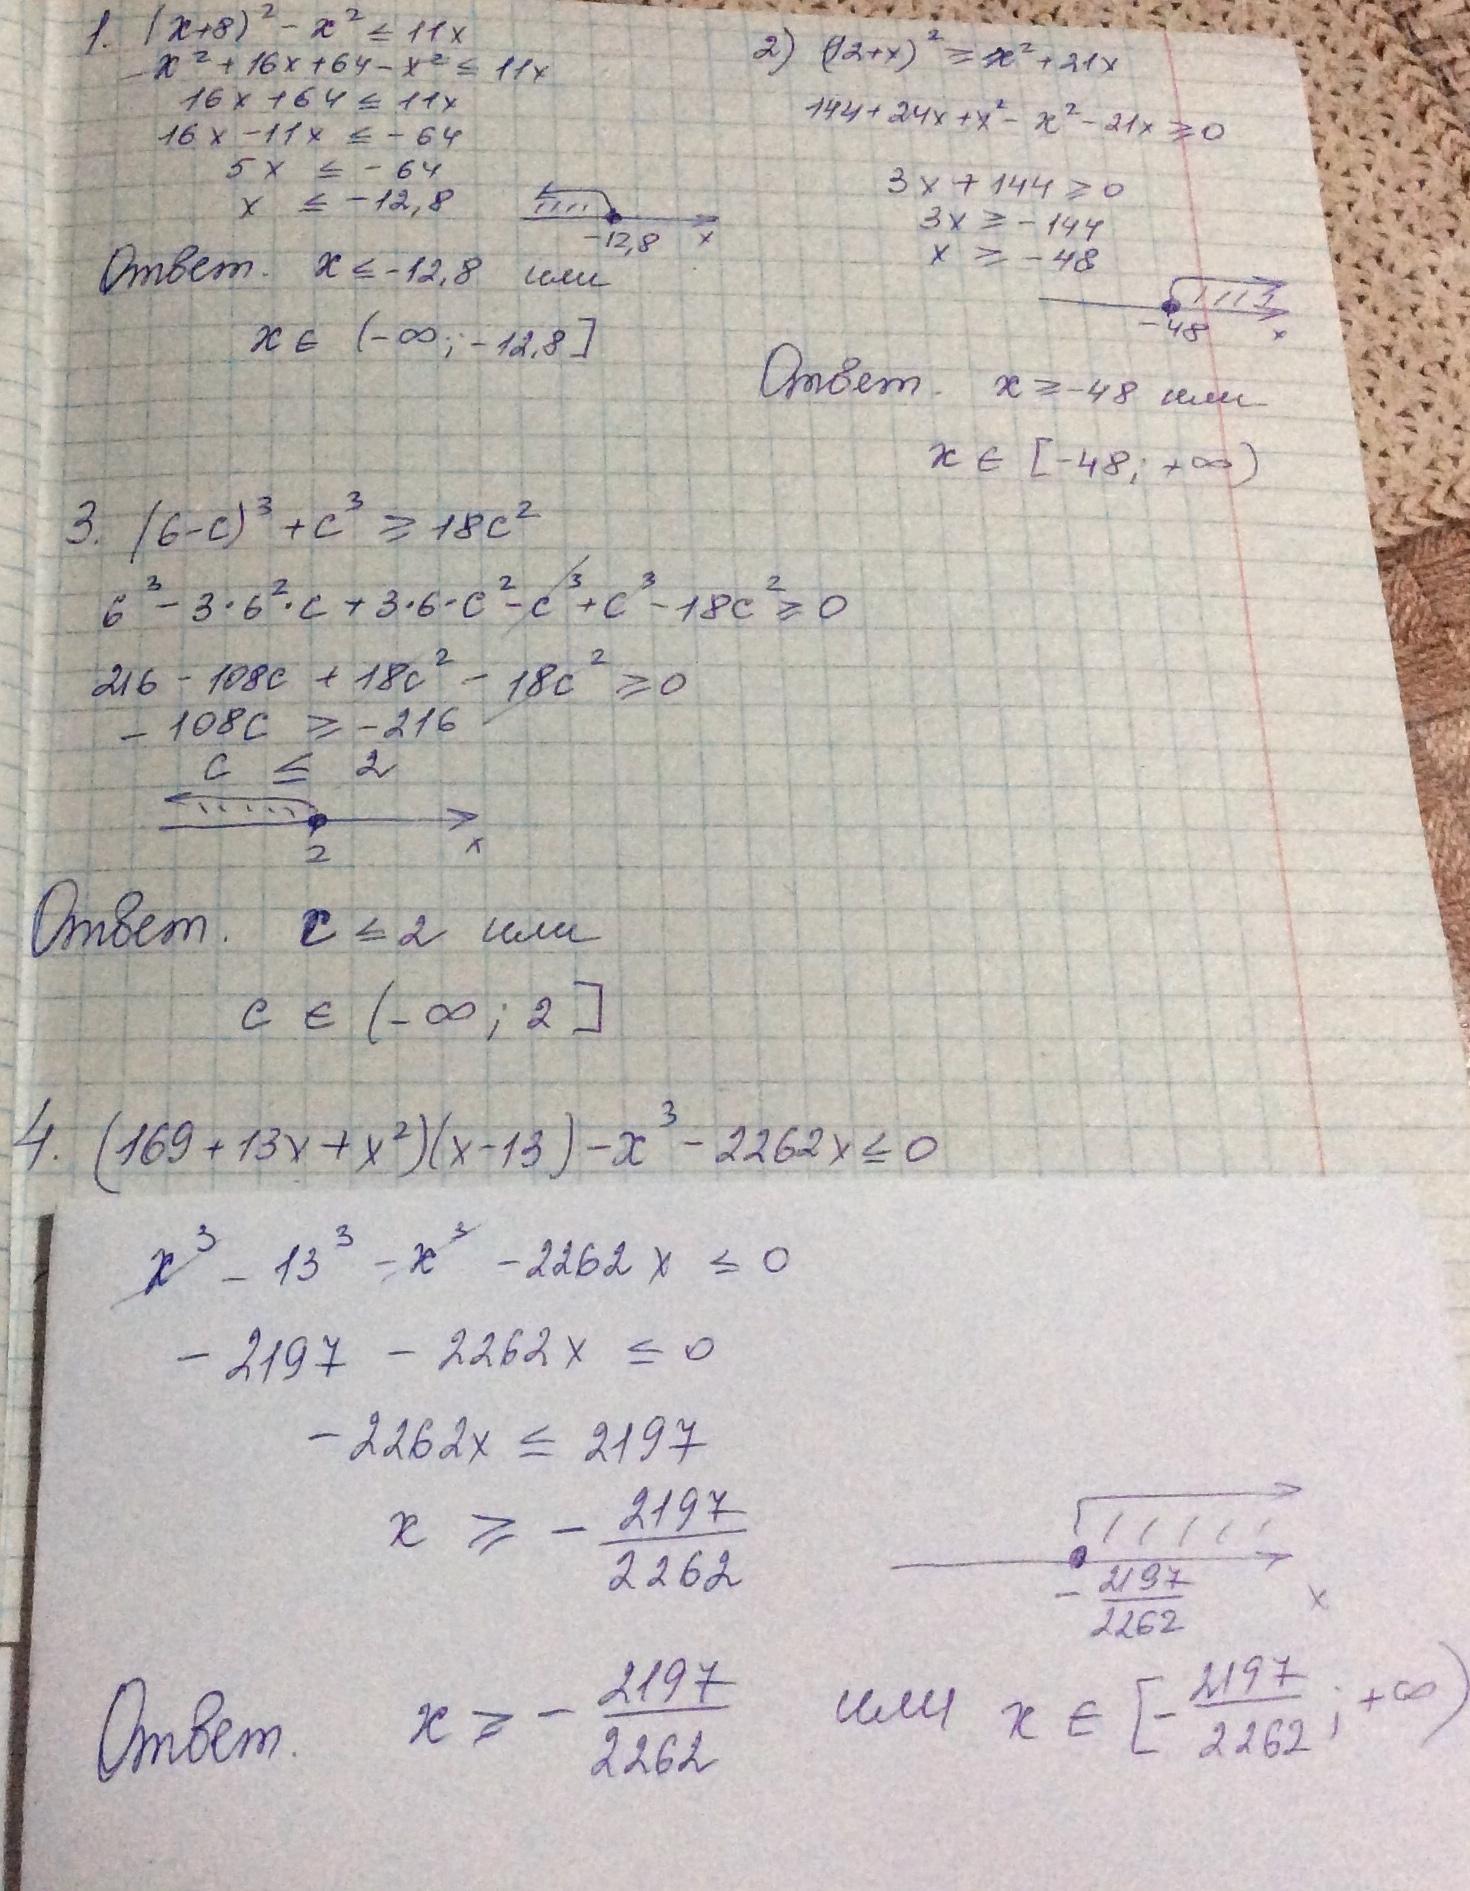 1. (x+8)² - x² ≤ 11x
x² + 16x + 64 - x² ≤ 11x
16x + 64 ≤ 11x
16x - 11x ≤ -64
5x ≤ -64
x ≤ -12,8
-12,8 x
Ответ. x ≤ -12,8 или
x ∈ (-∞; -12,8]
2) (12+x)² ≥ x² + 21x
144 + 24x + x² - x² - 21x ≥ 0
3x + 144 ≥ 0
3x ≥ -144
x ≥ -48
-48 x
Ответ. x ≥ -48 или
x ∈ [-48; +∞)
3. (6-c)³ + c³ ≥ 18c²
6³ - 3·6²·c + 3·6·c² - c³ + c³ - 18c² ≥ 0
216 - 108c + 18c² - 18c² ≥ 0
- 108c ≥ -216
c ≤ 2
2 x
Ответ. c ≤ 2 или
c ∈ (-∞; 2]
4. (169 + 13x + x²)(x - 13) - x³ - 2262x ≤ 0
x³ - 13³ - x³ - 2262x ≤ 0
- 2197 - 2262x ≤ 0
- 2262x ≤ 2197
x ≥ - 2197/2262
- 2197/2262 x
Ответ. x ≥ - 2197/2262 или x ∈ [- 2197/2262; +∞)